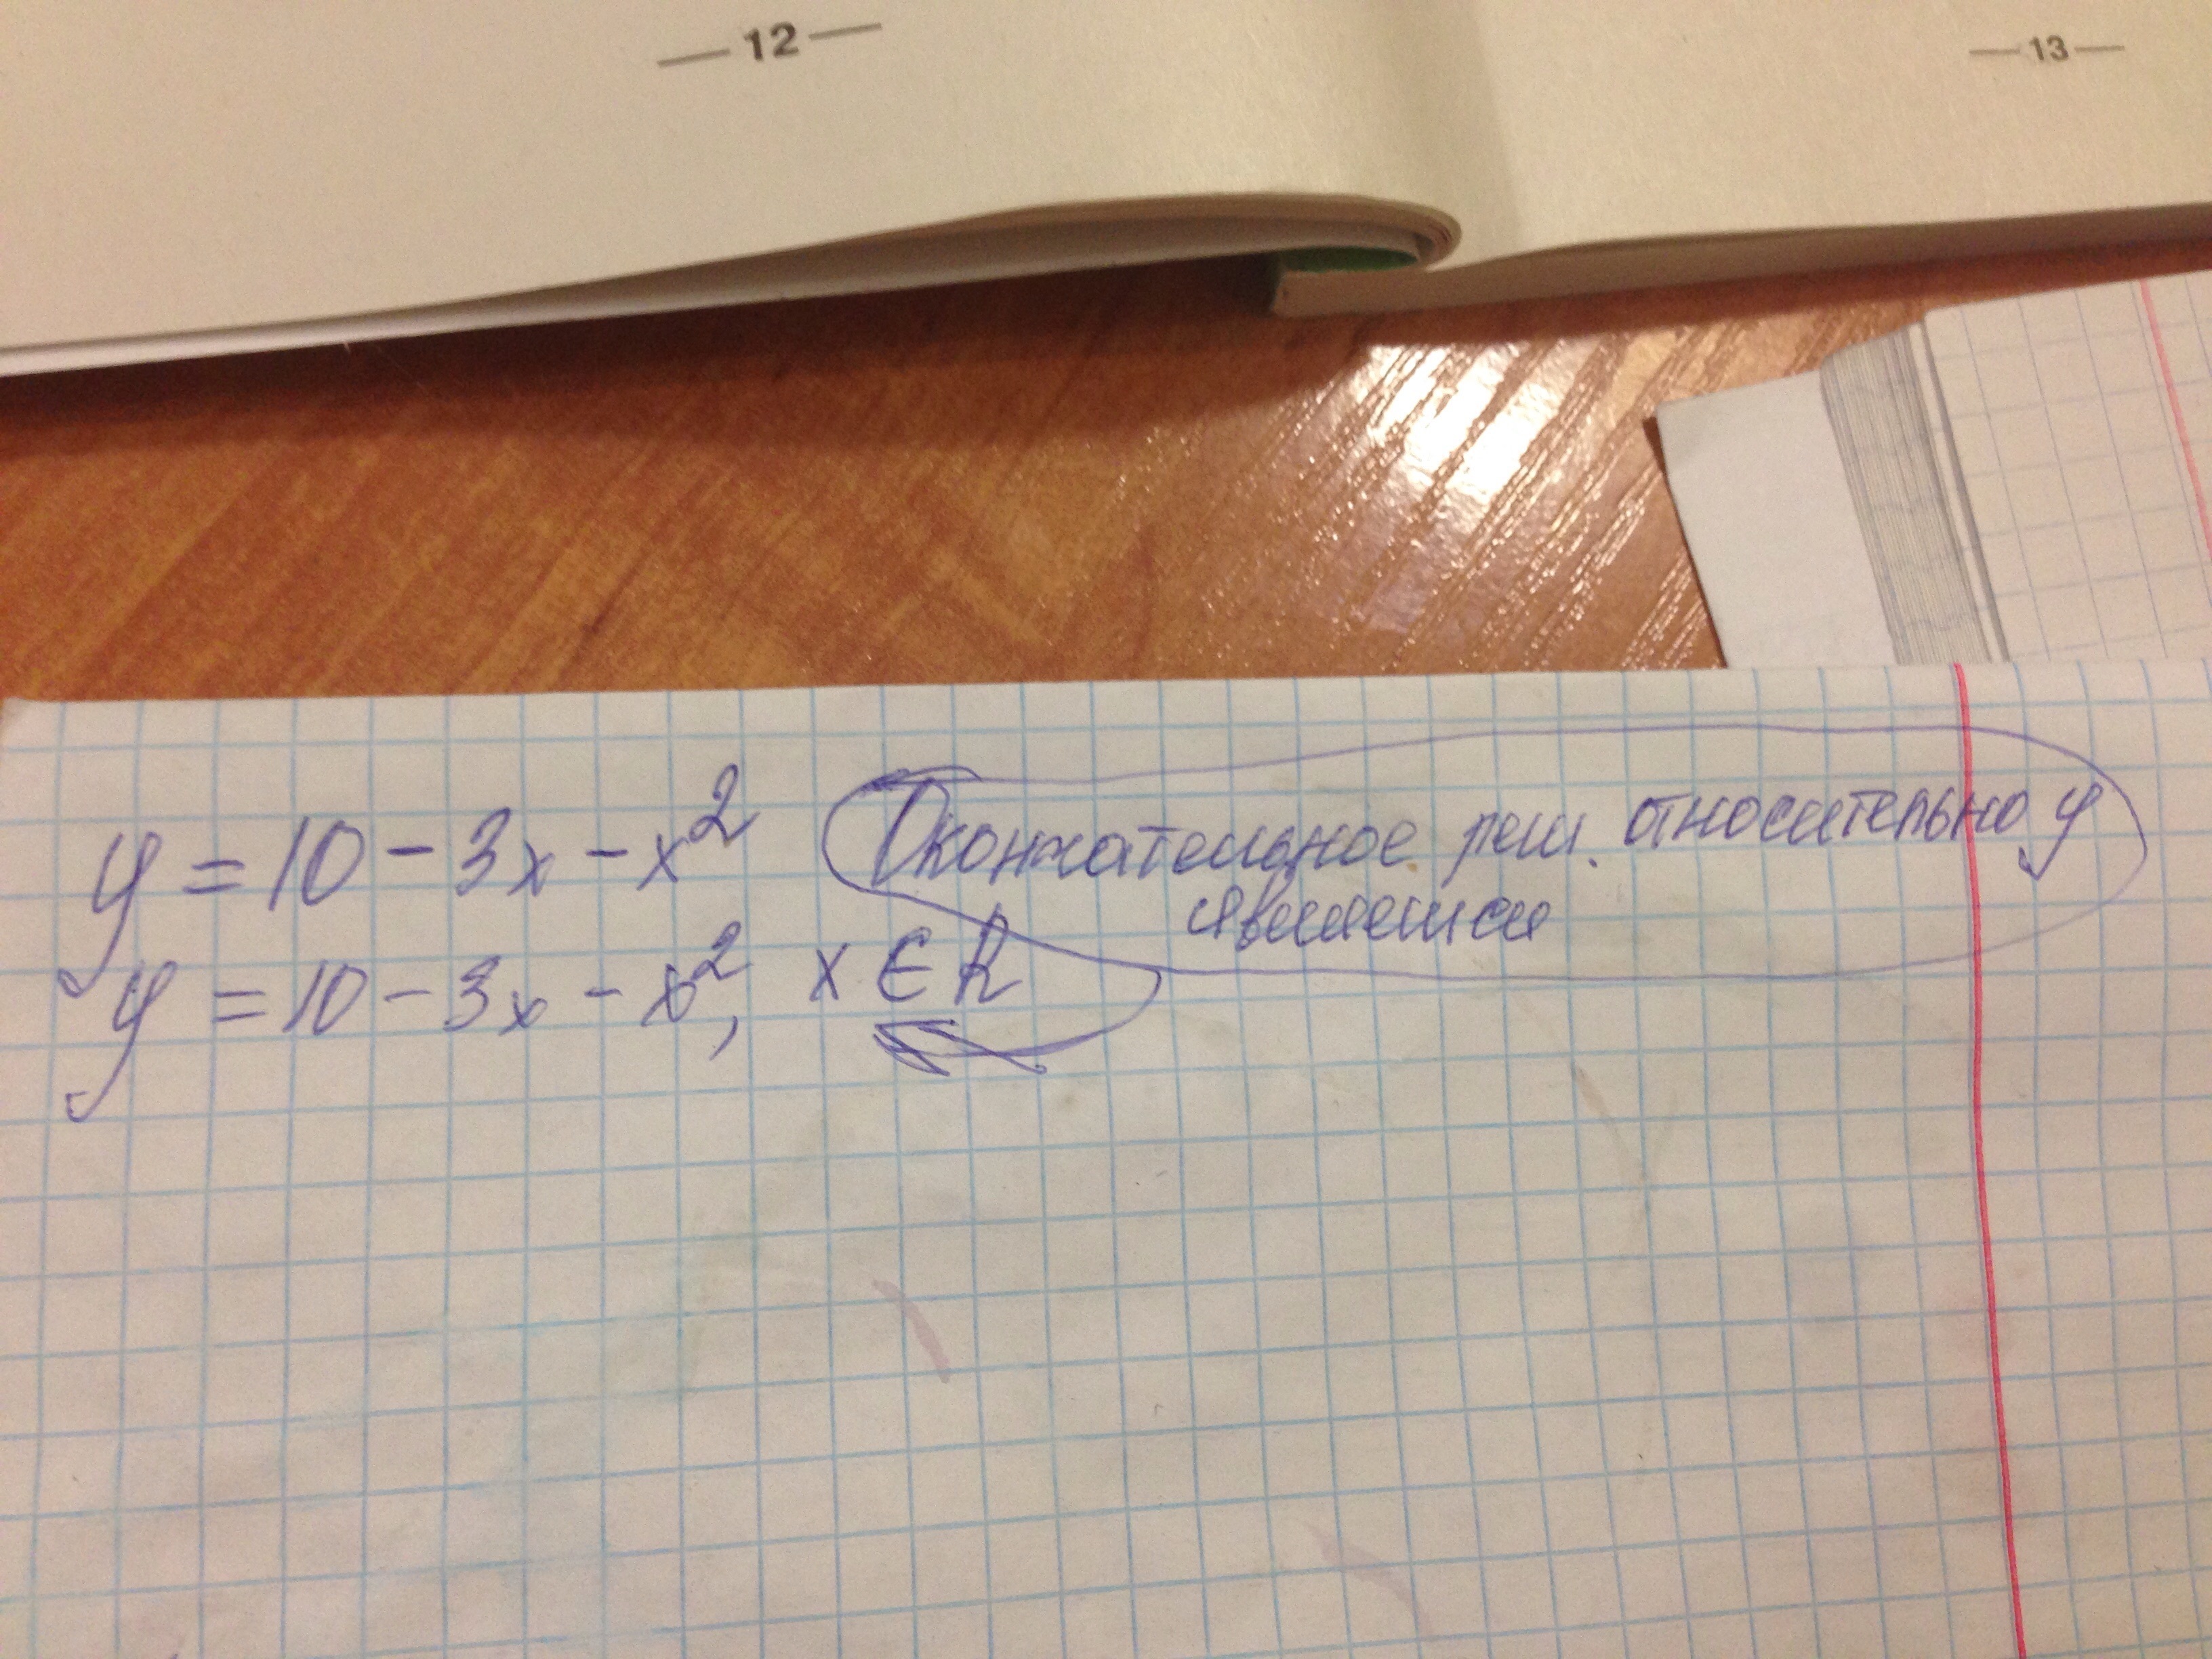 — 12 —
— 13 —
y = 10 - 3x - x²
Окончательное реш. относительно y
является
y = 10 - 3x - x², x ∈ R